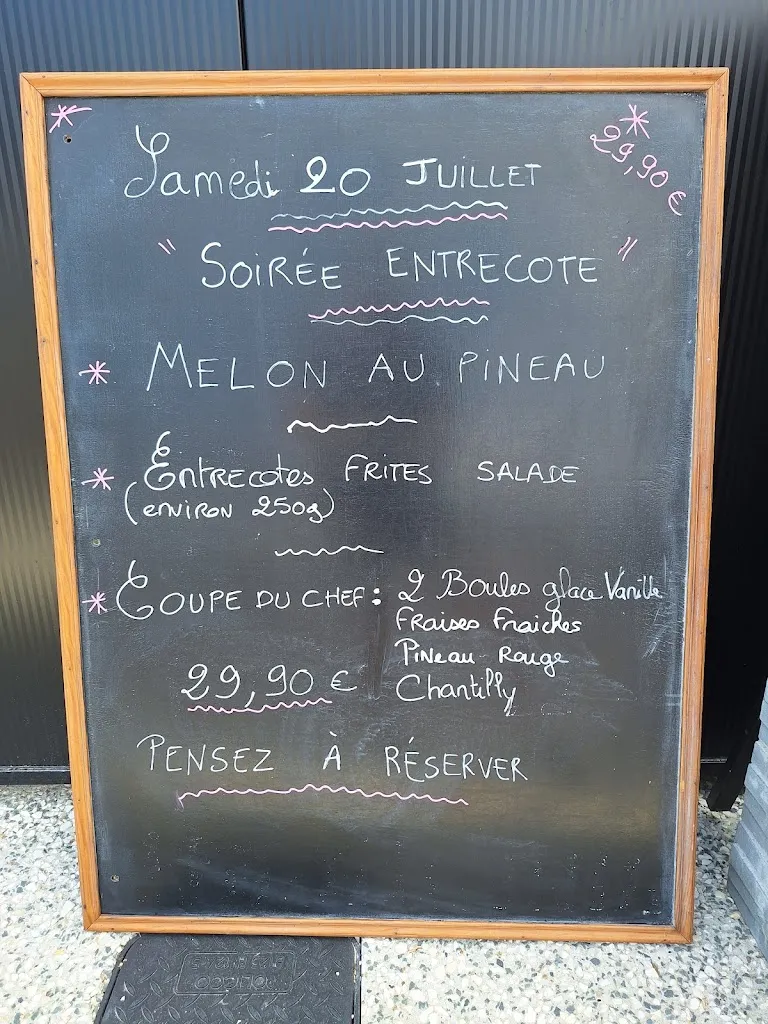 Samedi 20 JUILLET
29,90 €
" SOIRÉE ENTRECOTE "
* MELON AU PINEAU
* ENTRECOTES FRITES SALADE
(ENVIRON 250g)
* COUPE DU CHEF : 2 Boules glace Vanille
FRAISES FRAICHES
PINEAU ROUGE
29,90 € Chantilly
PENSEZ À RÉSERVER